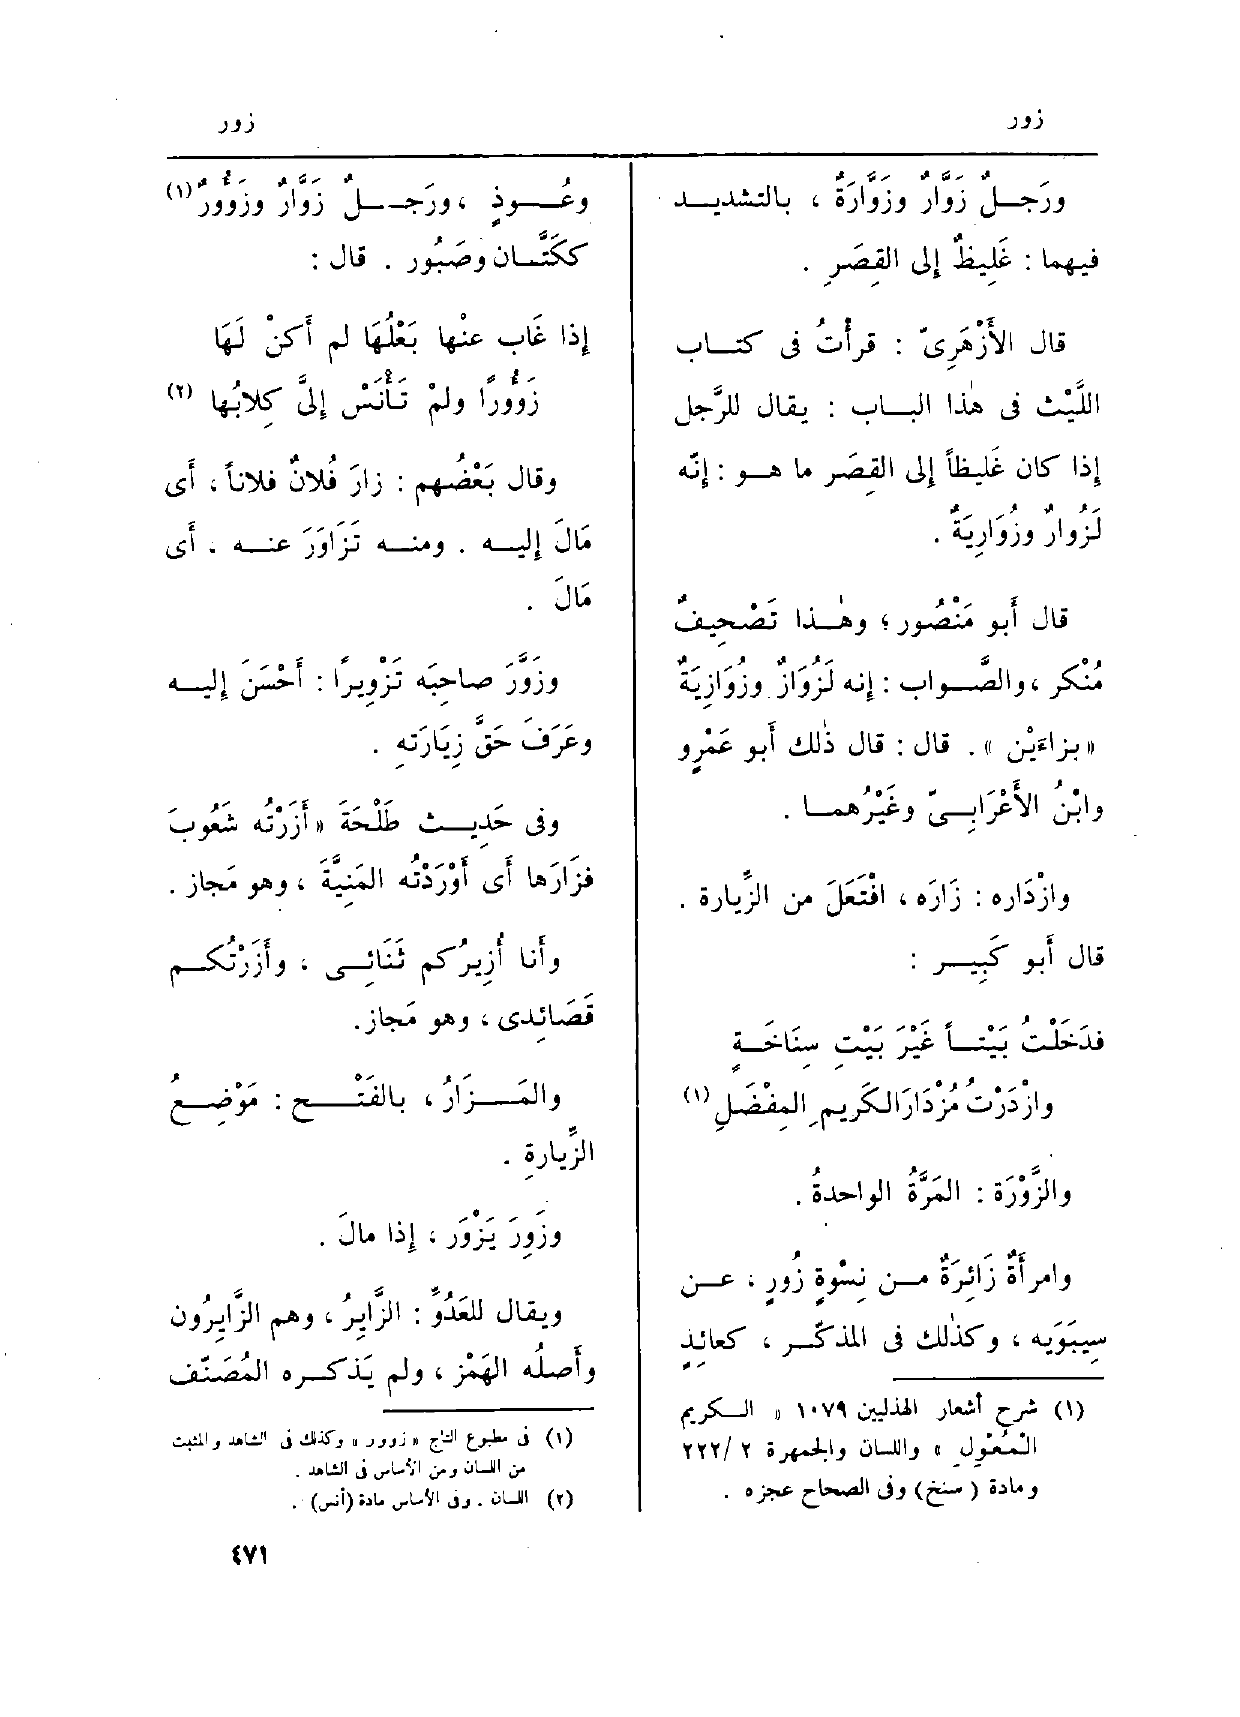 زور
زور
ورَجـلٌ زَوَّارٌ وزَوَّارَةٌ ، بالتشديـد
فيهما : غَلِيظٌ إلى القِصَرِ .
قال الأَزْهَرِىّ : قرأْتُ فى كتـاب
اللَّيْث فى هٰذا البـاب : يقال للرَّجل
إذا كان غَليظاً إلى القِصَر ما هـو : إنّه
لَزُوارٌ وزُوَارِيَةٌ .
قال أَبو مَنْصُور ؛ وهٰـذا تَصْحِيفٌ
مُنْكر ، والصَّـواب : إنه لَزُوَازٌ وزُوَازِيَةٌ
« بزاءَيْن » . قال : قال ذٰلك أَبو عَمْرٍو
وابْنُ الأَعْرَابِـىّ وغَيْرُهمـا .
وازْدَاره : زَارَه ، افْتَعَلَ من الزِّيارة .
قال أَبو كَبِيـر :
فدَخَلْتُ بَيْتـاً غَيْرَ بَيْتِ سِنَاخَـةٍ
وازْدَرْتُ مُزْدَارَ الكَرِيمِ المِفْضَلِ (١)
والزَّوْرَة : المَرَّةُ الواحدةُ .
وامرأَةٌ زَائِرَةٌ مـن نِسْوةٍ زُورٍ ، عـن
سِيبَوَيه ، وكذٰلك فى المذكّـر ، كعائـذٍ
(١) شرح أشعار الهذليين ١٠٧٩ « الـكريم
المُعْوِل » واللسان والجمهرة ٢ /٢٢٢
ومادة ( سنخ) وفى الصحاح عجزه .
وعُــوذٍ ، ورَجـلٌ زَوَّارٌ وزَؤُورٌ (١)
ككَتَّـان وصَبُور . قال :
إذا غَاب عنْها بَعْلُهَا لم أَكنْ لَهَا
زَؤُورًا ولمْ تَأْنَسْ إلىَّ كِلابُها (٢)
وقال بَعْضُهم : زارَ فُلانٌ فلاناً ، أَى
مَالَ إليـه . ومنـه تَزَاوَرَ عنـه . أَى
مَالَ .
وزَوَّرَ صاحِبَه تَزْوِيرًا : أَحْسَنَ إليـه
وعَرَفَ حَقَّ زِيَارَتهِ .
وفى حَدِيـث طَلْحَةَ « أَزَرْتُه شَعُوبَ
فزَارَها أَى أَوْرَدْتُه المَنِيَّةَ ، وهو مَجاز .
وأَنا أُزِيرُكم ثَنَائِـى ، وأَزَرْتُكـم
قَصَائِدى ، وهو مَجاز.
والمَـزارُ ، بالفَتْـح : مَوْضِـعُ
الزِّيارةِ .
وزَوِرَ يَزْوَر ، إذا مالَ .
ويقال للعَدُوِّ : الزَّايِرُ ، وهم الزَّايِرُون
وأَصلُه الهَمْز ، ولم يَذكـره المُصَنّف
(١) فى مطبوع التاج « زوور » وكذلك فى الشاهد والمثبت
من اللسان ومن الأساس فى الشاهد .
(٢) اللسان . وفى الأساس مادة (أنس) .
٤٧١